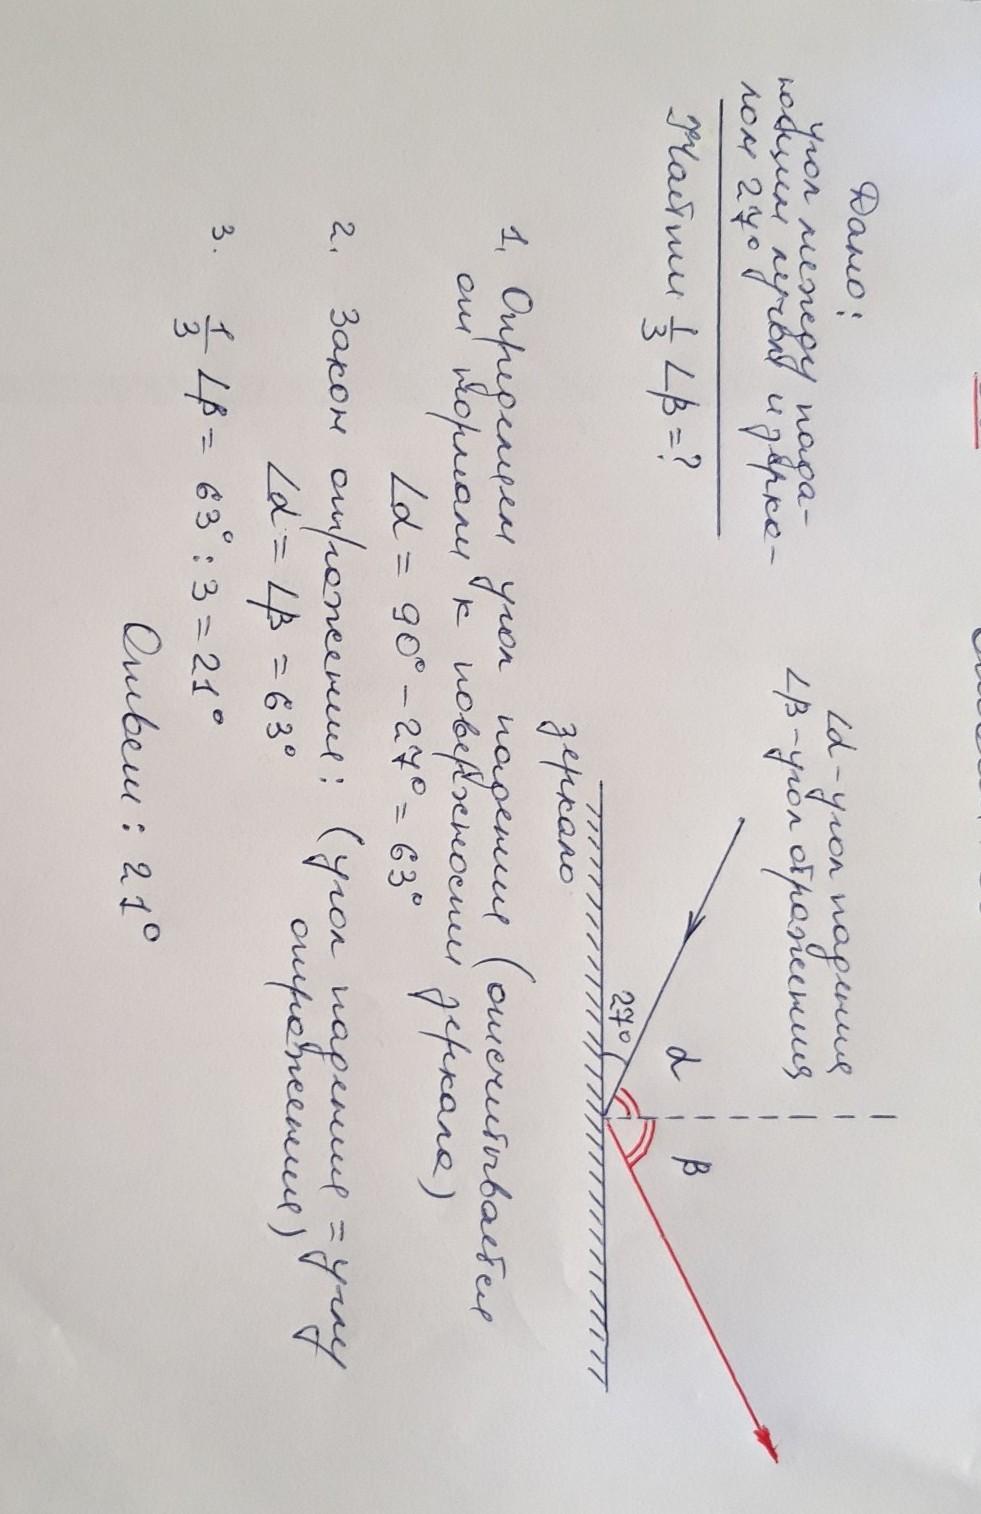 Дано:
угол между пада-
ющим лучом и зерка-
лом 27°
Найти 1/3 ∠β = ?
∠α - угол падения
∠β - угол отражения
27°
α
β
зеркало
1. Определяем угол падения (отсчитывается
от нормали к поверхности зеркала)
∠α = 90° - 27° = 63°
2. Закон отражения: (угол падения = углу
отражения)
∠α = ∠β = 63°
3. 1/3 ∠β = 63° : 3 = 21°
Ответ: 21°